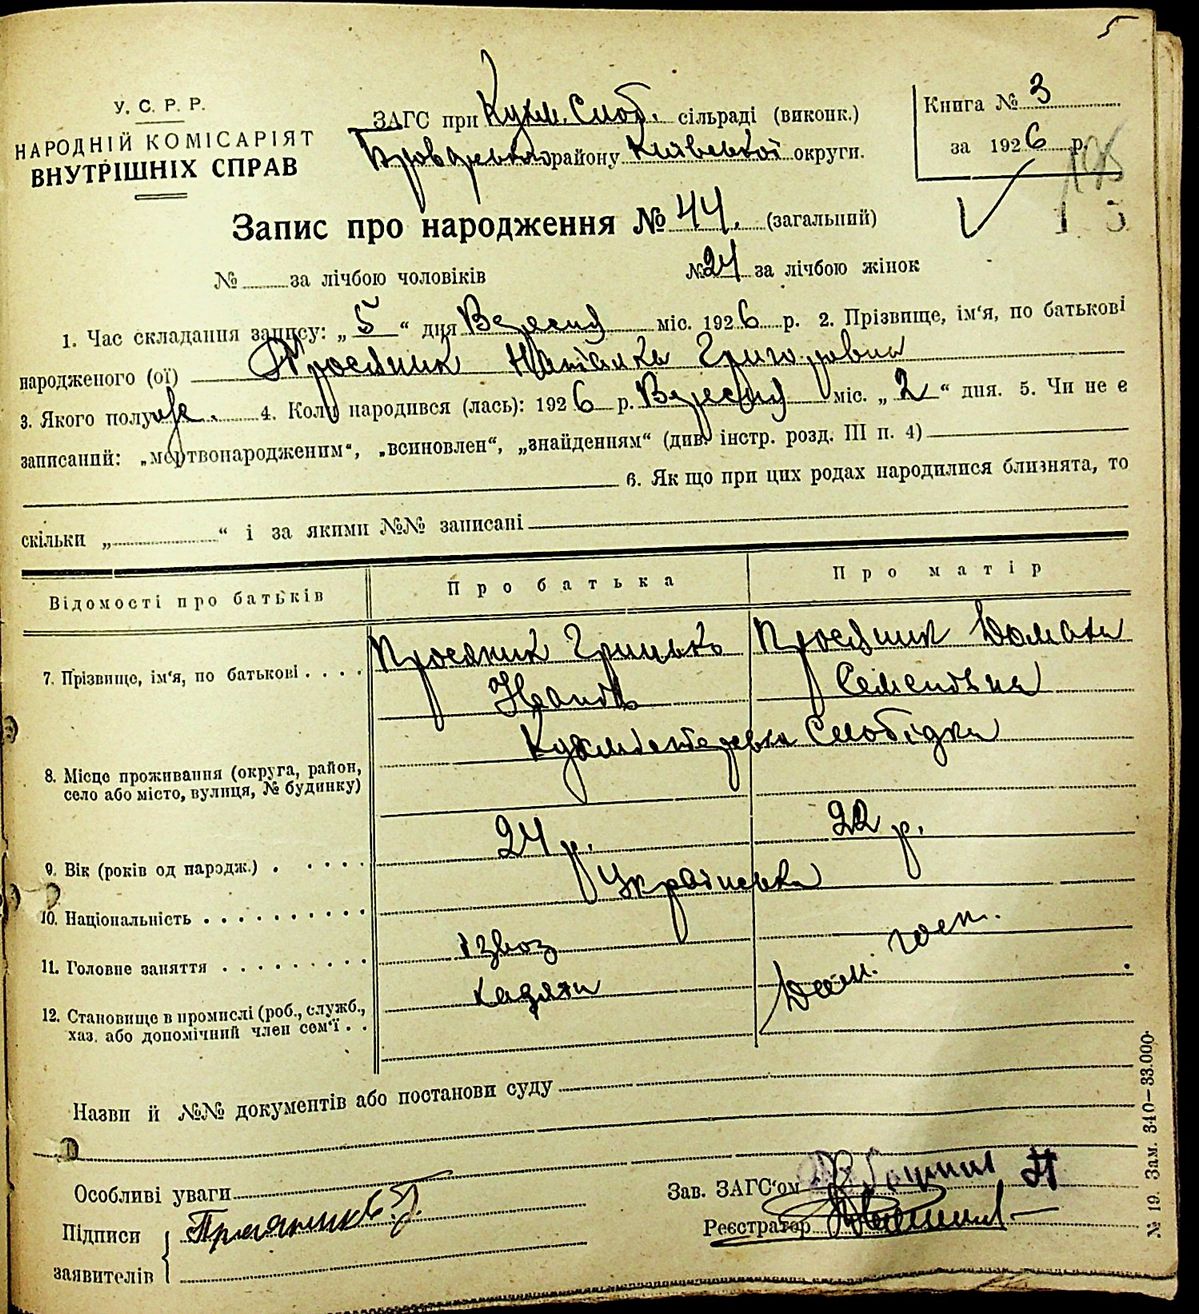 5
У. С. Р. Р.
НАРОДНІЙ КОМІСАРІЯТ
ВНУТРІШНІХ СПРАВ
ЗАГС при Кухм. Слоб. сільраді (виконк.)
Броварського району Київської округи.
Книга № 3
за 1926 р.
Запис про народження № 44. (загальний)
№ за лічбою чоловіків № 24 за лічбою жінок
1. Час складання запису: „5“ дня Вересня міс. 1926 р. 2. Прізвище, ім'я, по батькові
народженого (ої) Просяник Наталка Григоровна
3. Якого полу же. 4. Коли народився (лась): 1926 р. Вересня міс. „2“ дня. 5. Чи не є
записаний: „мертвонародженим“, „всиновлен“, „знайденням“ (див. інстр. розд. III п. 4)
6. Як що при цих родах народилися близнята, то
скільки „ “ і за якими №№ записані
Відомості про батьків Про батька Про матір
7. Прізвище, ім'я, по батькові Просяник Грицько Просяник Домаха
Іванов Семеновна
8. Місце проживання (округа, район, село або місто, вулиця, № будинку) Слобідка
9. Вік (років од народж.) 24 р. 22 р.
10. Національність Українська
11. Головне заняття ізвоз
12. Становище в промислі (роб., служб., хаз. або допомічний член сем'ї Дом. госп.
Назви й №№ документів або постанови суду
Особливі уваги
Зав. ЗАГС'ом
Підписи Просяник
Реєстратор
заявителів
№ 19. Зам. 340—33.000